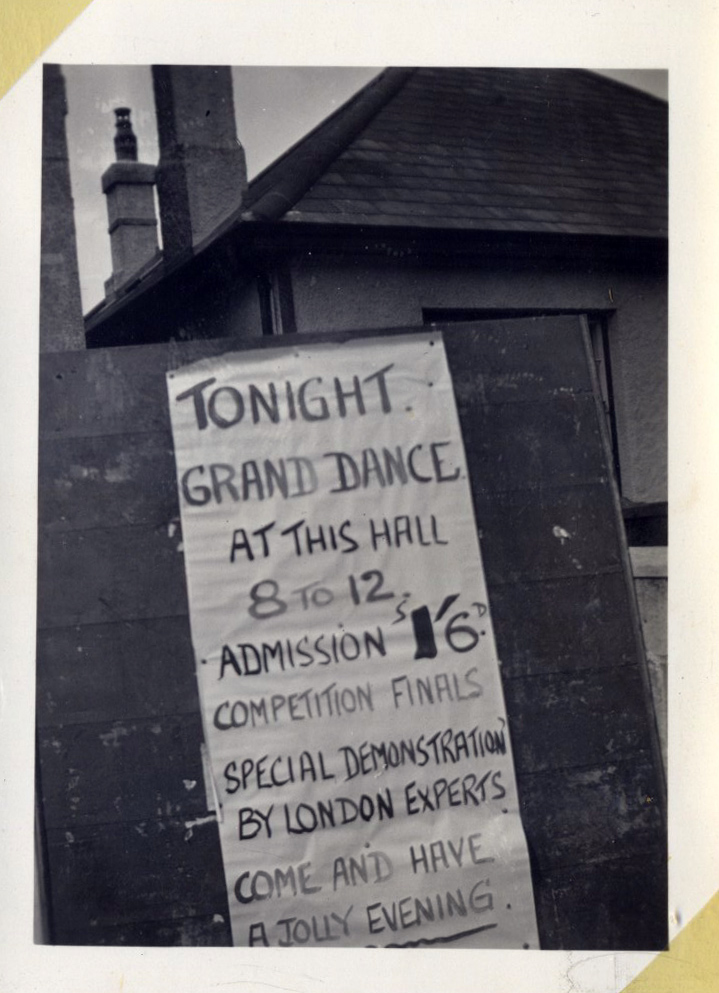 TONIGHT.
GRAND DANCE.
AT THIS HALL
8 TO 12.
ADMISSION S 1'6 D.
COMPETITION FINALS
SPECIAL DEMONSTRATION
BY LONDON EXPERTS
COME AND HAVE
A JOLLY EVENING.